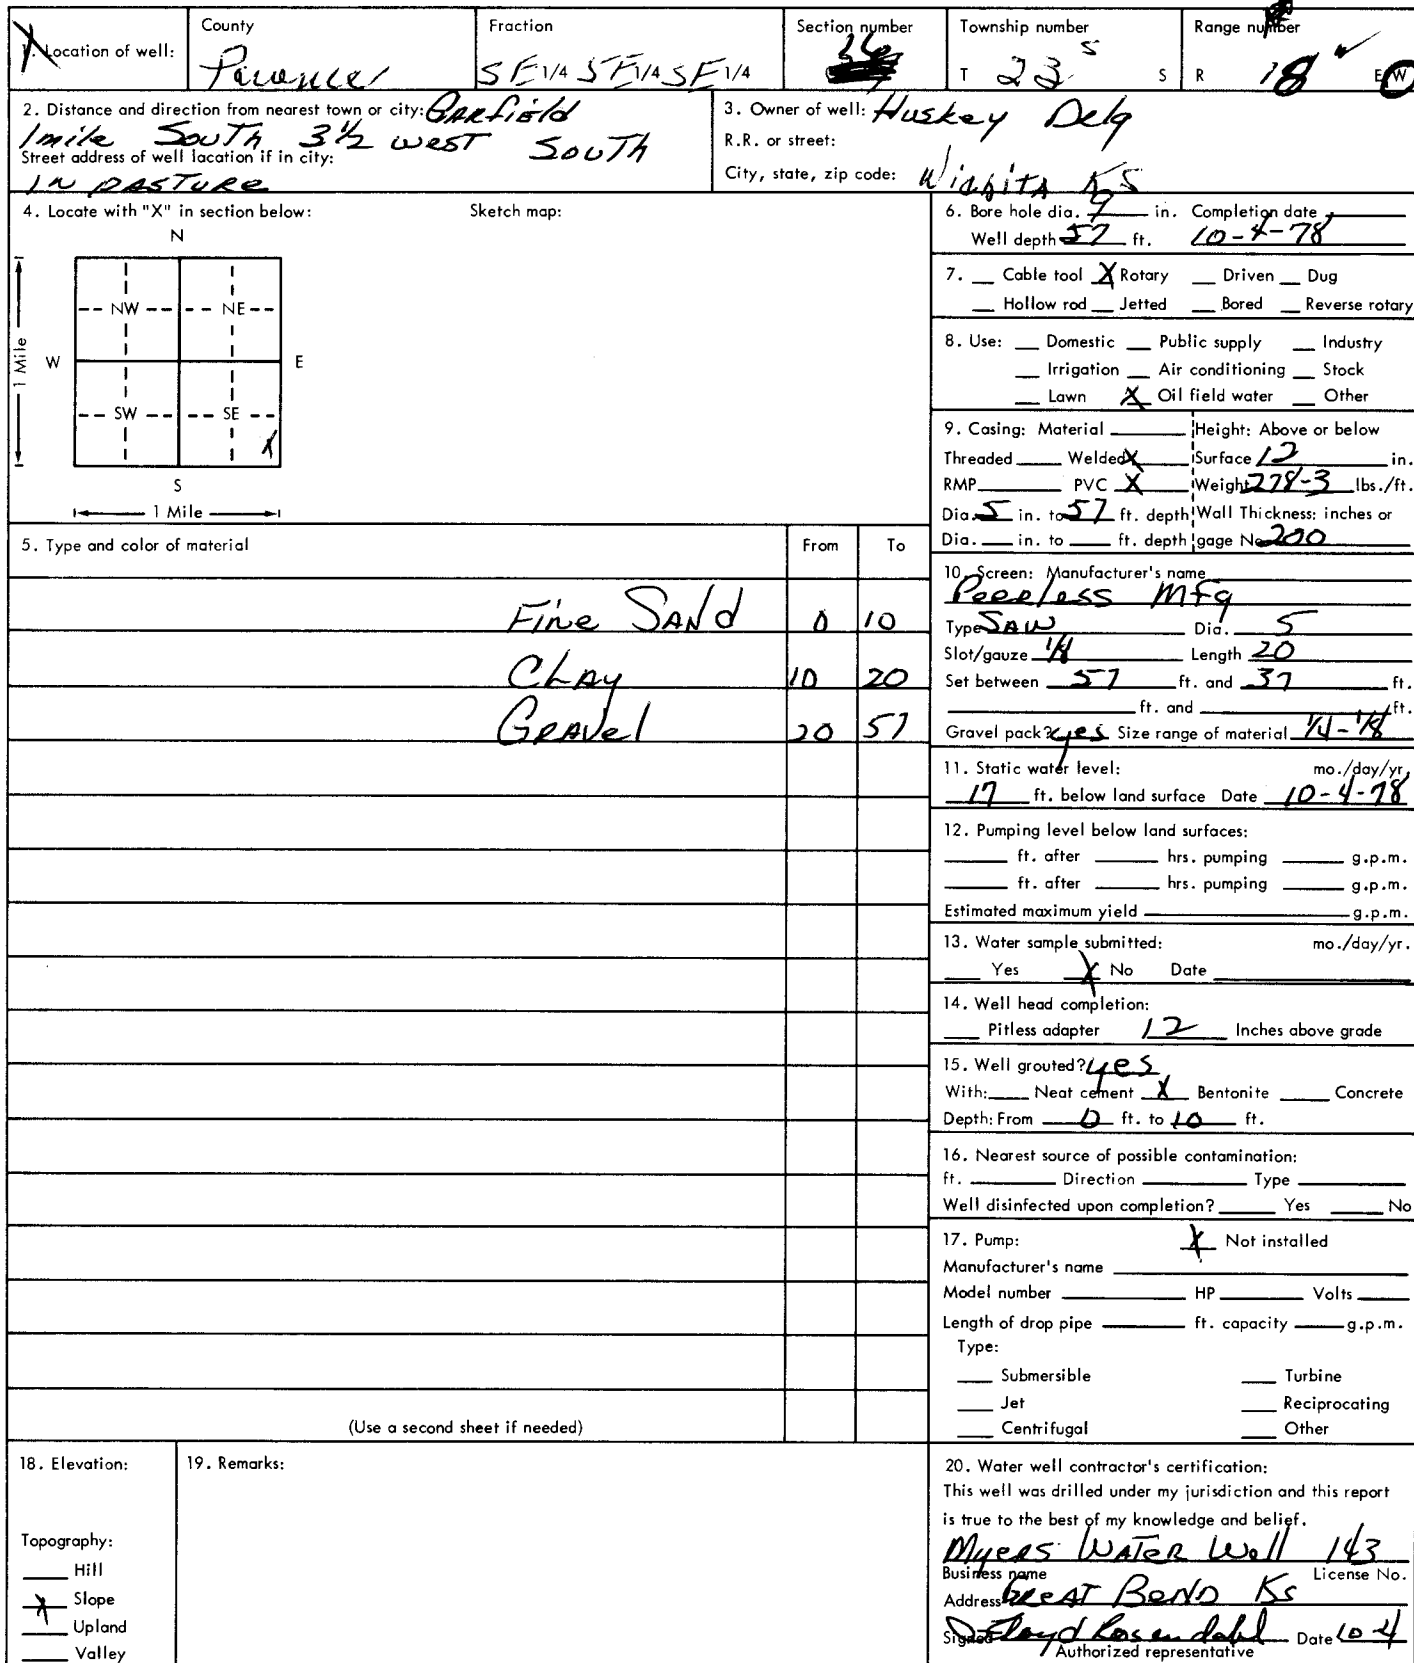 1. Location of well: County Pawnee Fraction SE 1/4 SE 1/4 SE 1/4 Section number 36 Township number T 23 S S Range number R 18 E W
2. Distance and direction from nearest town or city: Garfield
1 mile South 3 1/2 west South
Street address of well location if in city:
IN PASTURE
3. Owner of well: Huskey Delg
R.R. or street:
City, state, zip code: Wichita KS
4. Locate with "X" in section below:
Sketch map:
N
NW NE
W E
1 Mile
SW SE X
S
1 Mile
5. Type and color of material From To
Fine Sand 0 10
Clay 10 20
Gravel 20 57
(Use a second sheet if needed)
6. Bore hole dia. 9 in. Completion date
Well depth 57 ft. 10-4-78
7. Cable tool X Rotary Driven Dug
Hollow rod Jetted Bored Reverse rotary
8. Use: Domestic Public supply Industry
Irrigation Air conditioning Stock
Lawn X Oil field water Other
9. Casing: Material Height: Above or below
Threaded Welded X Surface 12 in.
RMP PVC X Weight 278-3 lbs./ft.
Dia. 5 in. to 57 ft. depth Wall Thickness: inches or
Dia. in. to ft. depth gage No 200
10. Screen: Manufacturer's name
Peerless Mfg
Type SAW Dia. 5
Slot/gauze 1/8 Length 20
Set between 57 ft. and 37 ft.
ft. and ft.
Gravel pack? yes Size range of material 1/4-1/8
11. Static water level: mo./day/yr.
17 ft. below land surface Date 10-4-78
12. Pumping level below land surfaces:
ft. after hrs. pumping g.p.m.
ft. after hrs. pumping g.p.m.
Estimated maximum yield g.p.m.
13. Water sample submitted: mo./day/yr.
Yes X No Date
14. Well head completion:
Pitless adapter 12 Inches above grade
15. Well grouted? yes
With: Neat cement X Bentonite Concrete
Depth: From 0 ft. to 10 ft.
16. Nearest source of possible contamination:
ft. Direction Type
Well disinfected upon completion? Yes No
17. Pump: X Not installed
Manufacturer's name
Model number HP Volts
Length of drop pipe ft. capacity g.p.m.
Type:
Submersible Turbine
Jet Reciprocating
Centrifugal Other
18. Elevation:
Topography:
Hill
X Slope
Upland
Valley
19. Remarks:
20. Water well contractor's certification:
This well was drilled under my jurisdiction and this report
is true to the best of my knowledge and belief.
Myers Water Well 143
Business name License No.
Address Great Bend Ks
Signed Floyd Rosendahl Date 10-4
Authorized representative